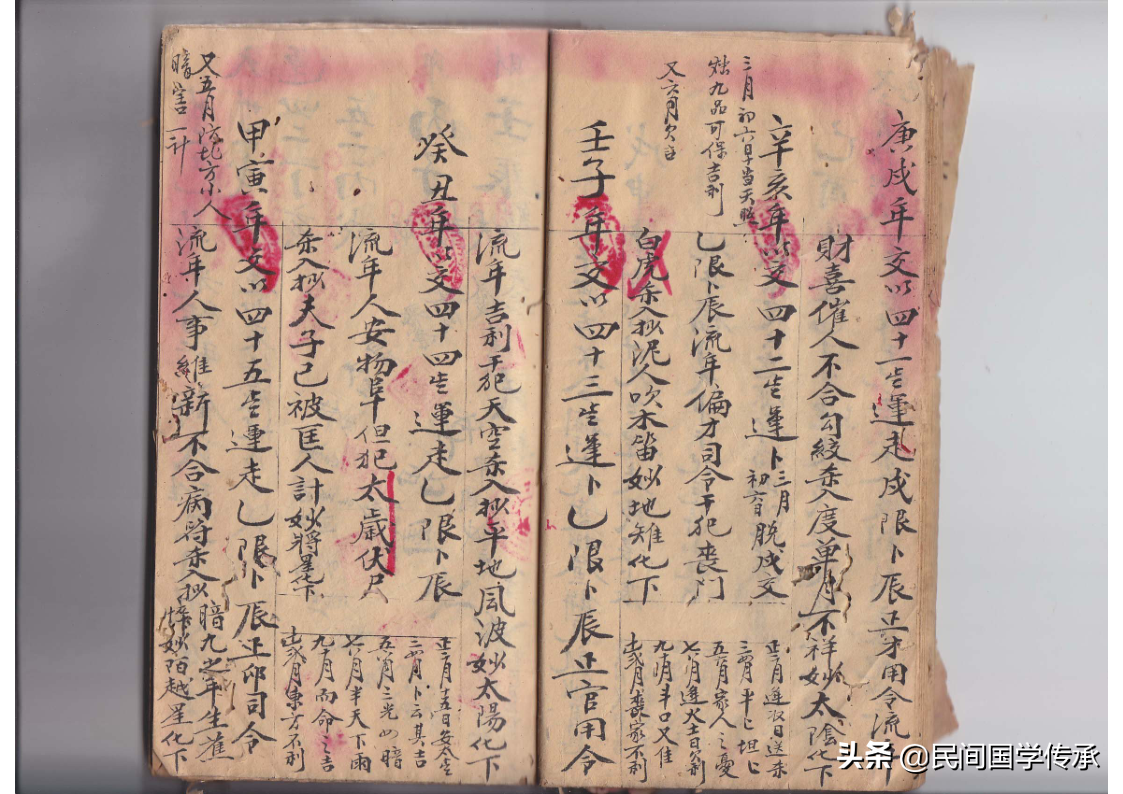 庚戌年交以四十一岁運走戌限卜辰正才用令流年
財喜催人不合勾絞杀入度單月不祥妙太陰化下
辛亥年以交四十二岁運卜三月初六日脱戌交
三月初六日早當天照
九品可保吉利
又六月欠主
乙限卜辰流年偏才司令干犯喪門
白虎杀入抄泥人吹木笛妙地雉化下
正二月進次日送杀
三四月半亡坦亡
五六月家人之憂
七八月進火土日欠利
九十月斗口又佳
十一十二月喪家不利
壬子年交以四十三岁運卜乙限卜辰正官用令
流年吉利干犯天空杀入抄平地風波妙太陽化下
癸丑年以交四十四岁運走乙限卜辰
流年人安物阜但犯太歲伏尸
杀入抄夫子已被匡人計妙將星化下
正二月十五日安全生
三四月卜云其吉
五六月三光四暗
七八月半天下雨
九十月向命之吉
十一十二月東方不利
甲寅年交以四十五岁運走乙限卜辰正卯司令
又五月防北方小人
暗害一計
流年人事維新不合病符杀入抄暗九之年生崔妙陌越星化下
头条 @民间国学传承